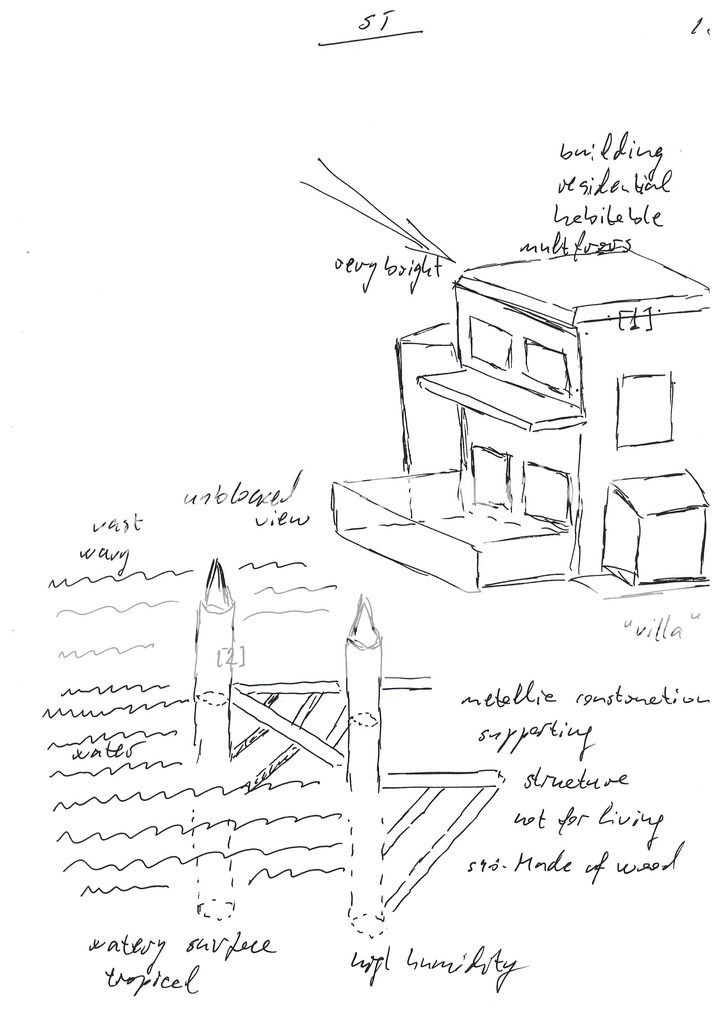 ST
building
residential
habitable
very bright
[1]
unblocked
view
vast
wavy
"villa"
[2]
metallic construction
supporting
water
structure
not for living
Made of wood
watery surface
tropical
high humidity